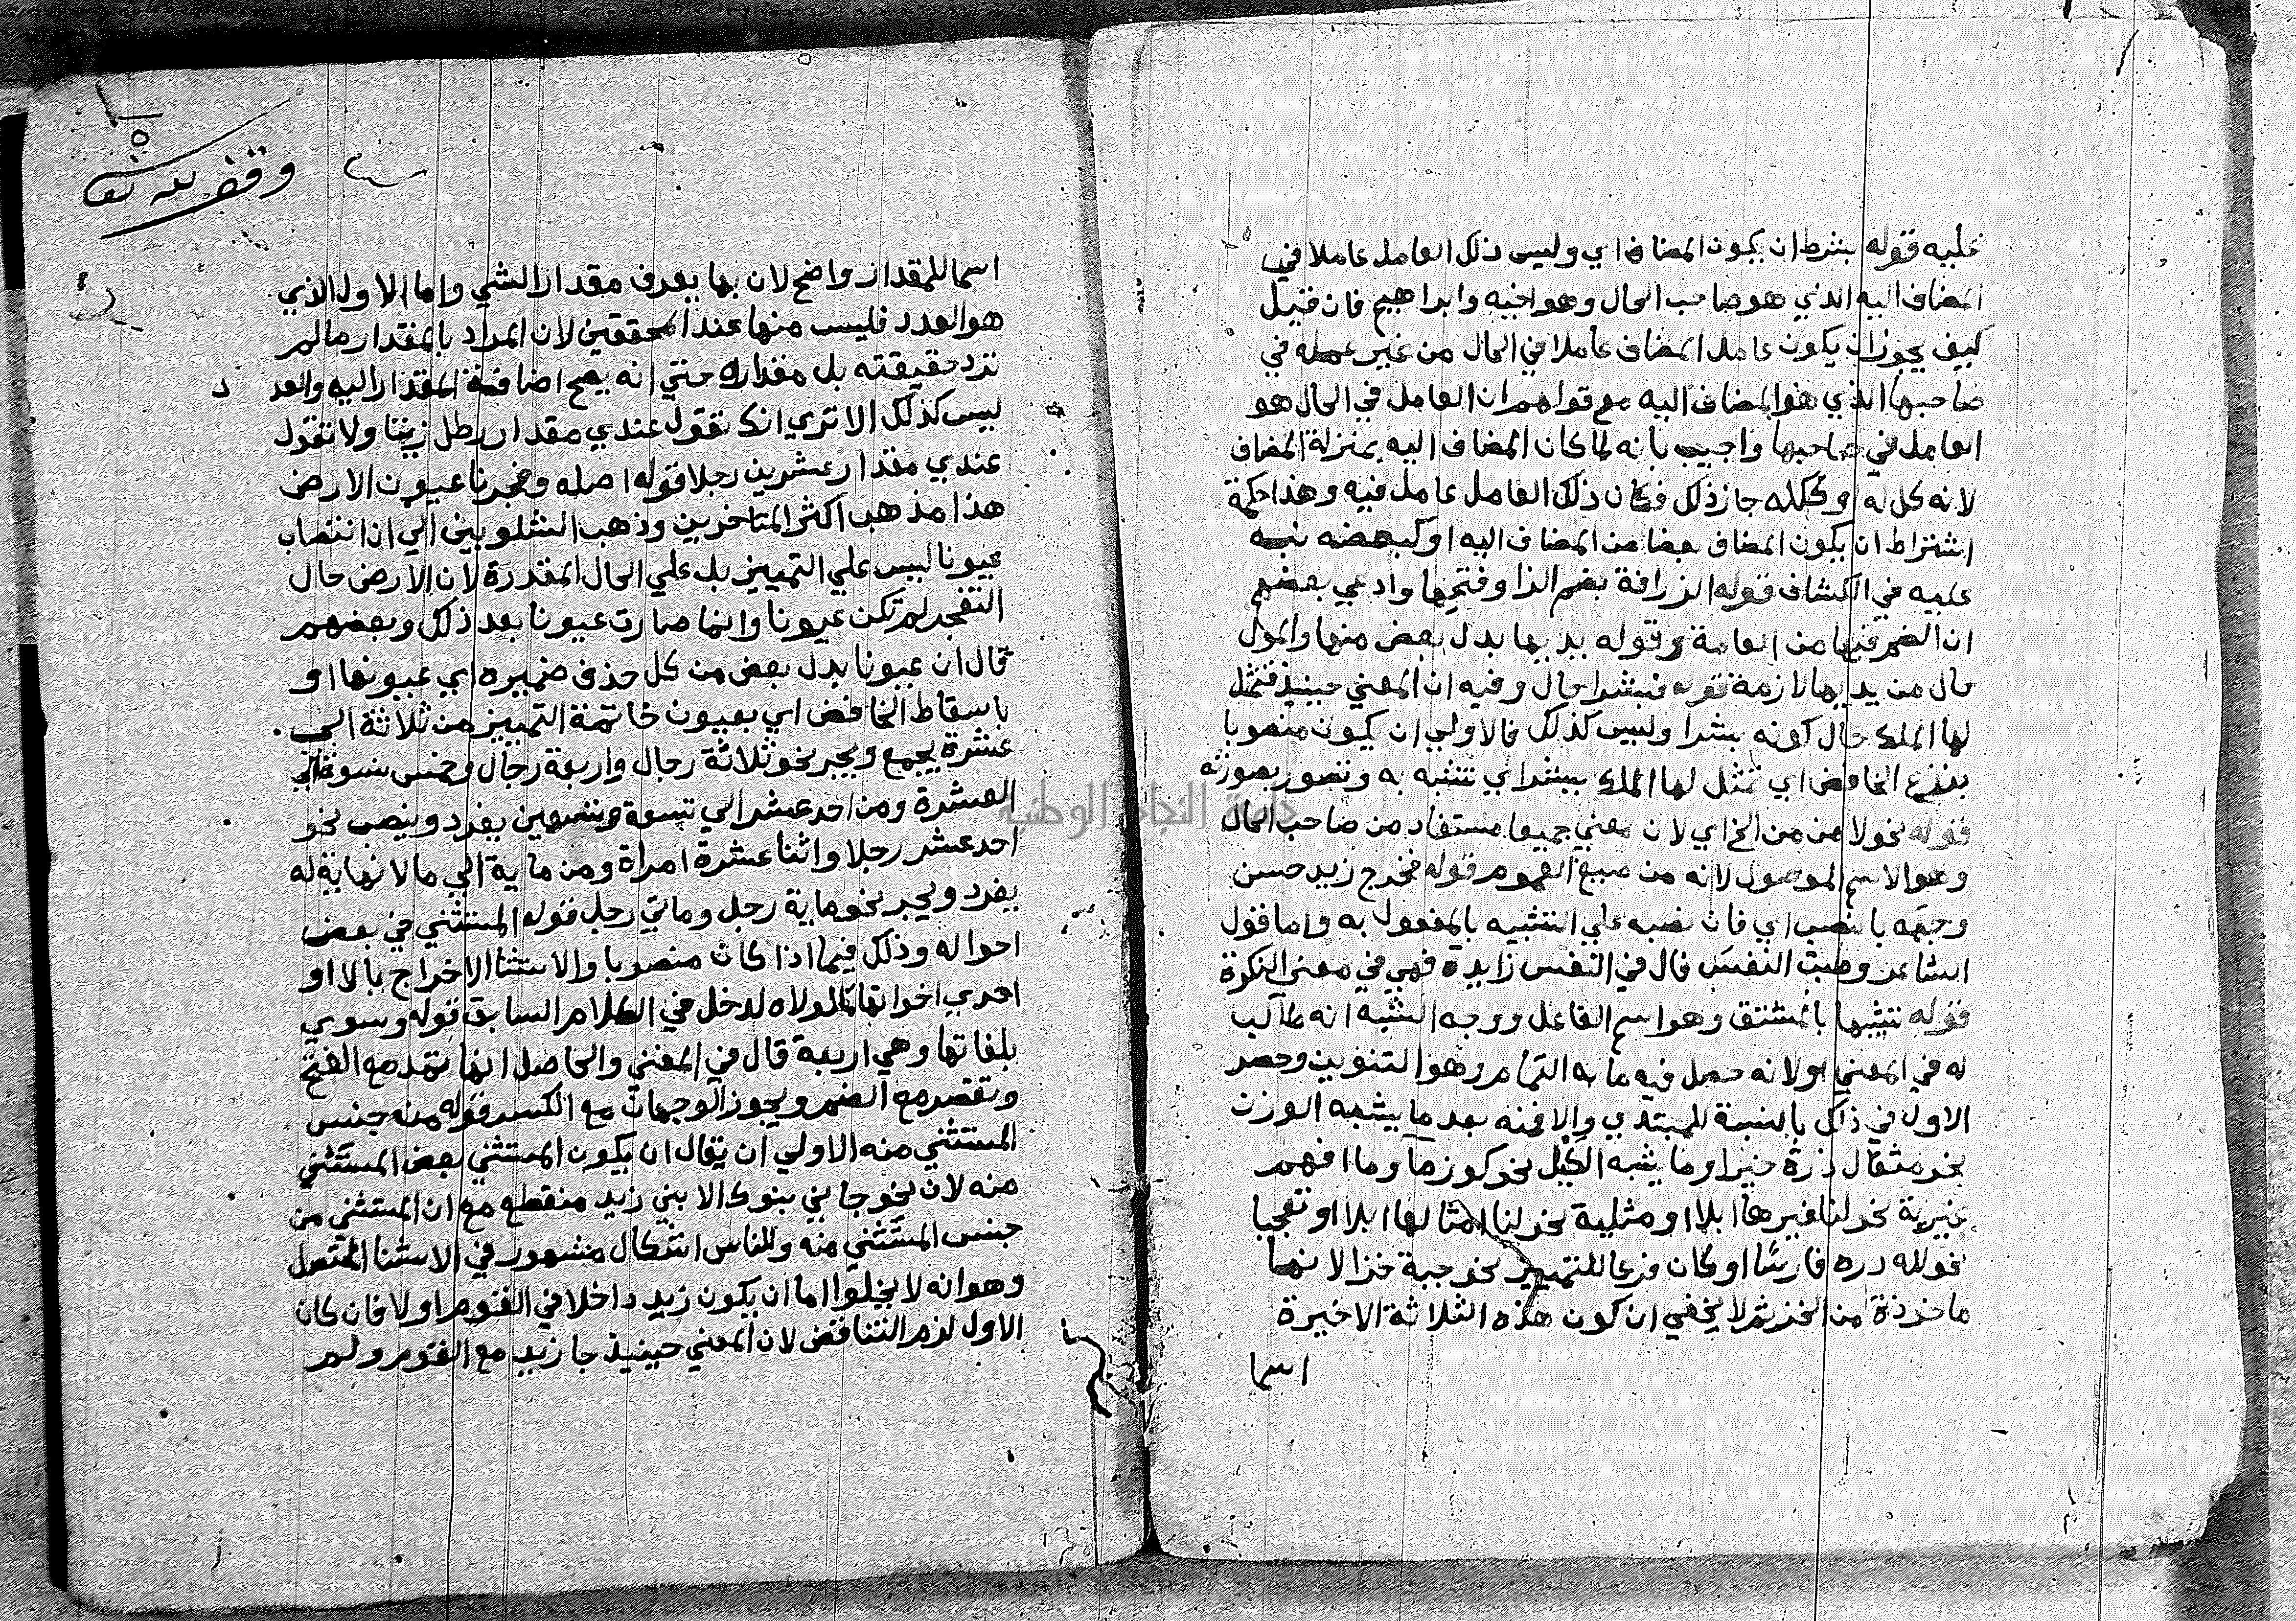 عليه قوله بشرط ان يكون المضاف اي وليس ذلك العامل عاملا في
المضاف اليه الذي هو صاحب الحال وهو اخيه وابراهيم فان قيل
كيف يجوز ان يكون عامل المضاف عاملا في الحال من غير عمله في
صاحبها الذي هو المضاف اليه مع قولهم ان العامل في الحال هو
العامل في صاحبها واجيب بانه لما كان المضاف اليه بمنزلة المضاف
لانه كل له او ككله جاز ذلك فكان ذلك العامل عامل فيه وهذا حكمة
اشتراط ان يكون المضاف بعضا من المضاف اليه او كبعضه نبه
عليه في الكشاف قوله الزرافة بضم الزا وفتحها وادعي بعضهم
ان الضم فيها من العامة وقوله يديها بدل بعض منها واطول
حال من يديها لازمة قوله فبشرا حال وفيه ان المعني حينيذ فتمثل
لها الملك حال كونه بشرا وليس كذلك فالاولي ان يكون منصوبا
بنزع الخافض اي تمثل لها الملك ببشر اي تشبه به وتصور بصورته
قوله نحو لامن من الخ اي لان معني جميعا مستفاد من صاحب الحال
وهو الاسم الموصول لانه من صيغ العموم قوله فخرج زيد حسن
وجهه بالنصب اي فان نصبه علي التشبيه بالمفعول به واما قول
الشاعر وطبت النفس فال في النفس زايدة فهي في معني النكرة
قوله تشبيها بالمشتق وهو اسم الفاعل ووجه الشبه انه طالب
له في المعني او لانه حصل فيه ما به التمام وهو التنوين وحصر
الاول في ذلك بالنسبة للمبتدي والا فمنه بعد ما يشبه الوزن
نحو مثقال ذرة خيرا وما يشبه الكيل نحو كوز ما وما افهم
غيرية نحو لنا غيرها ابلا او مثلية نحو لنا امثالها ابلا او تعجبا
نحو لله دره فارسا او كان فرعا للتمييز نحو جبة خزا لانها
ماخوذة من الخز ثم لا يخفي ان كون هذه الثلاثة الاخيرة
اسما
وقف لله تعا
اسما للمقدار واضح لان بها يعرف مقدار الشي واما الاول الذي
هو العدد فليس منها عند المحققين لان المراد بالمقدار ما لم
ترد حقيقته بل مقداره حتي انه يصح اضافة المقدار اليه والعد
د
ليس كذلك الا تري انك تقول عندي مقدار رطل زيتا ولا تقول
عندي مقدار عشرين رجلا قوله اصله وفجرنا عيون الارض
هذا مذهب اكثر المتاخرين وذهب الشلوبين الي ان انتصاب
عيونا ليس علي التمييز بل علي الحال المقدرة لان الارض حال
التفجر لم تكن عيونا وانما صارت عيونا بعد ذلك وبعضهم
قال ان عيونا بدل بعض من كل حذف ضميره اي عيونها او
باسقاط الخافض اي بعيون خاتمة التمييز من ثلاثة الي
عشرة يجمع ويجر نحو ثلاثة رجال واربعة رجال وخمس نسوة الي
العشرة ومن احد عشر الي تسعة وتسعين يفرد وينصب نحو
احد عشر رجلا واثنا عشرة امراة ومن ماية الي ما لا نهاية له
يفرد ويجر نحو ماية رجل ومايتي رجل قوله المستثني في بعض
احواله وذلك فيما اذا كان منصوبا والاستثنا الاخراج بالا او
احدي اخواتها لما لولاه لدخل في الكلام السابق قوله وسوي
بلغاتها وهي اربعة قال في المغني والحاصل انها تمد مع الفتح
وتقصر مع الضم ويجوز الوجهان مع الكسر قوله من جنس
المستثني منه الاولي ان يقال ان يكون المستثني بعض المستثني
منه لان نحو جا بني بنوك الا بني زيد منقطع مع ان المستثني من
جنس المستثني منه وللناس اشكال مشهور في الاستثنا المتصل
وهو انه لا يخلوا اما ان يكون زيد داخلا في القوم او لا فان كان
الاول لزم التناقض لان المعني حينيذ جا زيد مع القوم ولم
جامعة النجاح الوطنية